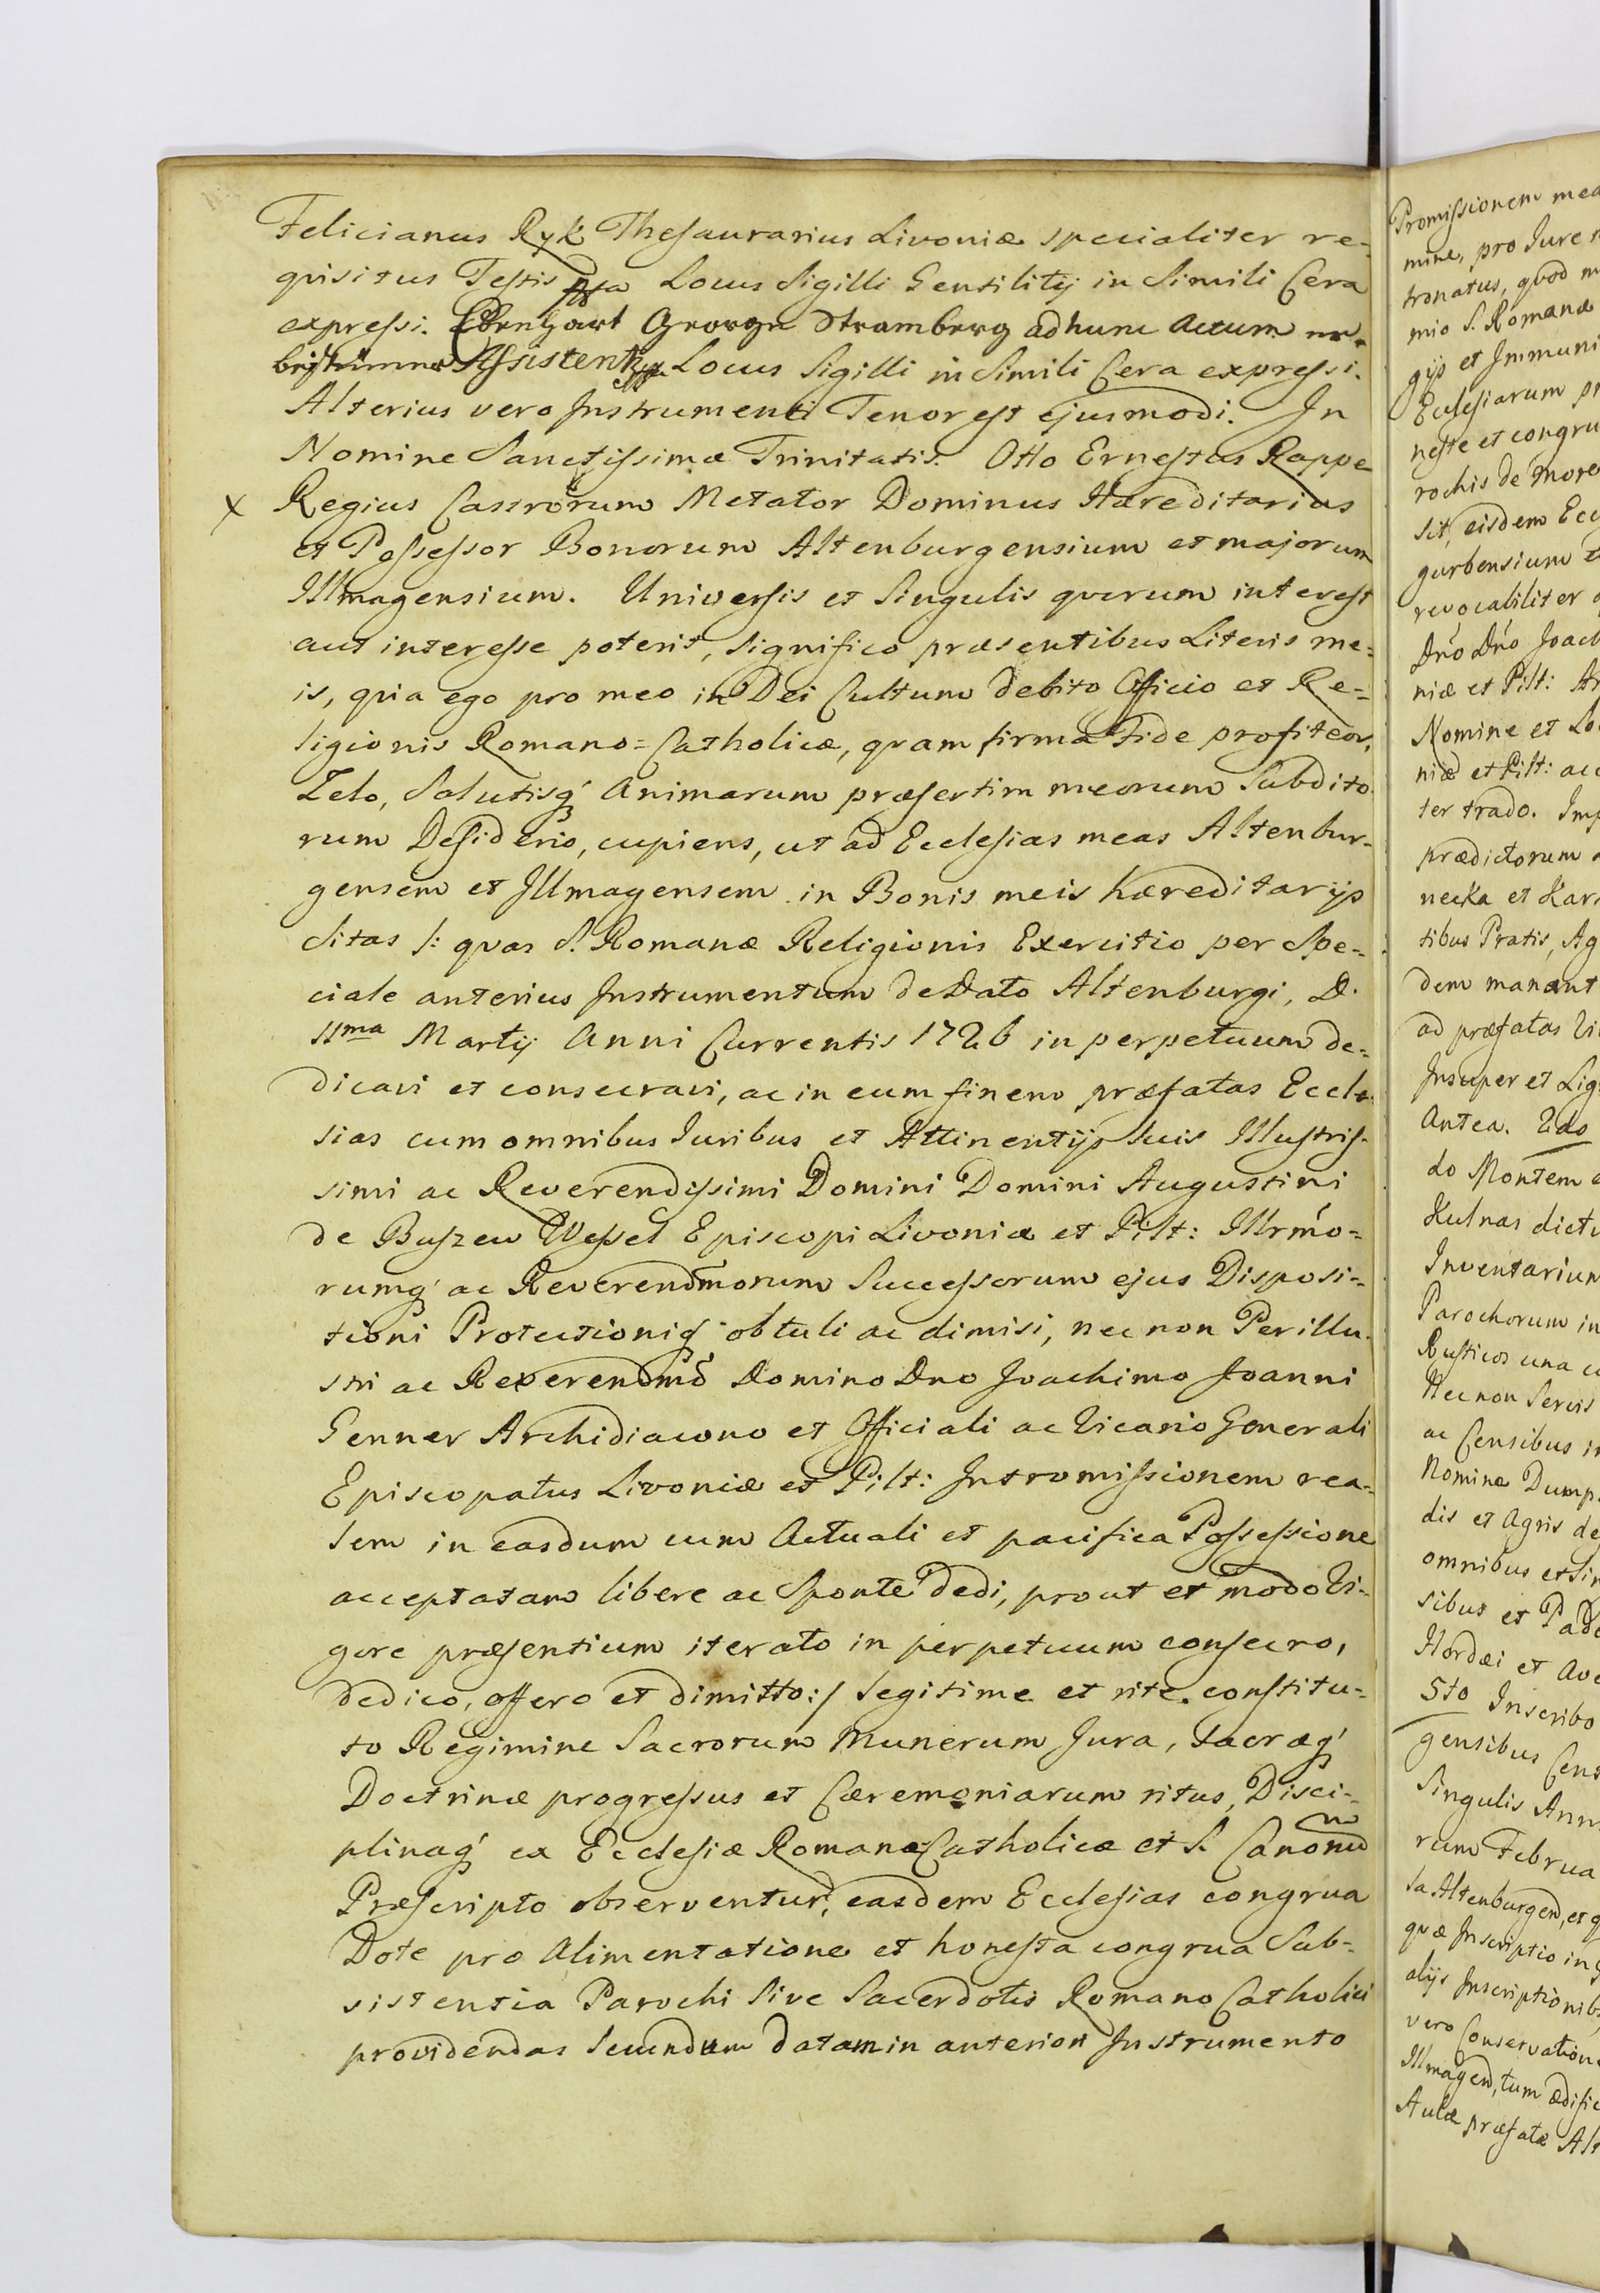 Felicianus Ryk Thesaurarius Livoniæ specialiter re=
quisitus Testis mpa Locus Sigilli Gentilitij in Simili Cera
expressi. Ebenhart George Stramberg ad hunc Actum
Assistent mpp Locus Sigilli in Simili Cera expressi.
Alterius vero Instrumenti Tenor est ejusmodi. In
Nomine Sanctissimæ Trinitatis. Otto Ernestus Rappe
x Regius Castrorum Metator Dominus Hæreditarius
et Possessor Bonorum Altenburgensium et majorum
Illmagensium. Universis et Singulis quorum interest
aut interesse poterit, significo præsentibus Literis me=
is, quia ego pro meo in Dei Cultum debito Officio et Re=
ligionis Romano=Catholicæ, quam firma Fide profiteor,
Zelo, Salutisq' Animarum præsertim meorum Subdito
rum Desiderio, cupiens, ut ad Ecclesias meas Altenbur=
gensem et Illmagensem in Bonis meis hæreditarijs
sitas /: quas S. Romanæ Religionis Exercitio per Spe=
ciale anterius Instrumentum de Dato Altenburgi, D.
11ma Martij Anni Currentis 1726 in perpetuum de=
dicavi et consecravi, ac in eum finem præfatas Eccle=
sias cum omnibus Iuribus et Attinentijs suis Illustris=
simi ac Reverendissimi Domini Domini Augustini
de Buszew Wessel Episcopi Livoniæ et Pilt: Illrmo=
rumq' ac Reverendmorum Successorum ejus Disposi=
tioni Protectioniq' obtuli ac dimisi, nec non Perillu=
stri ac Reverendmo Domino Dno Joachimo Joanni
Genner Archidiacono et Officiali ac Vicario Generali
Episcopatus Livoniæ et Pilt: Intromissionem rea=
lem in easdum cum Actuali et pacifica Possessione
acceptatam libere ac sponte dedi, prout et modo Vi=
gore præsentium iterato in perpetuum consecro,
dedico, offero et dimitto :/ legitime et rite constitu=
to Regimine Sacrorum Munerum Jura, Sacræq'
Doctrinæ progressus et Cæremoniarum ritus, Disci=
plinaq' ex Ecclesiæ Romanæ Catholicæ et S. Canonum
Præscripto observentur, easdem Ecclesias congrua
Dote pro Alimentatione et honesta congrua Sub=
sistentia Parochi sive Sacerdotis Romano Catholici
providendas secundum datam in anteriori Instrumento
Promissionem mea
mine, pro Jure
tronatus, quod
mio S. Romanæ
gijs et Immuni
Ecclesiarum
neste et congru
rochis de more
sit, eisdem Ecc
gurbensium
revocabiliter
Dno Dno Joach
niæ et Pilt: Ar
Nomine et Lo
niæ et Pilt: ac
ter trado. Imp
prædictorum
necka et Kar
tibus Pratis, Ag
dem manant
ad præfatas Vi
Insuper et Lig
Antea. 2do
do Montem
Kulnas dict
Inventarium
Parochorum in
Rusticos una c
Nec non Servis
ac Censibus in
Nomine Dump
dis et Agris de
omnibus et Sin
sibus et Pabu
Hordæi et Ave
5to Inscribo
gensibus Cens
Singulis Ann
rum Februa
sa Altenburgen, et q
quæ Inscriptio in
alijs Inscriptionib
vero Conservation
Illmagen, tum ædific
Aulæ præfatæ Alt